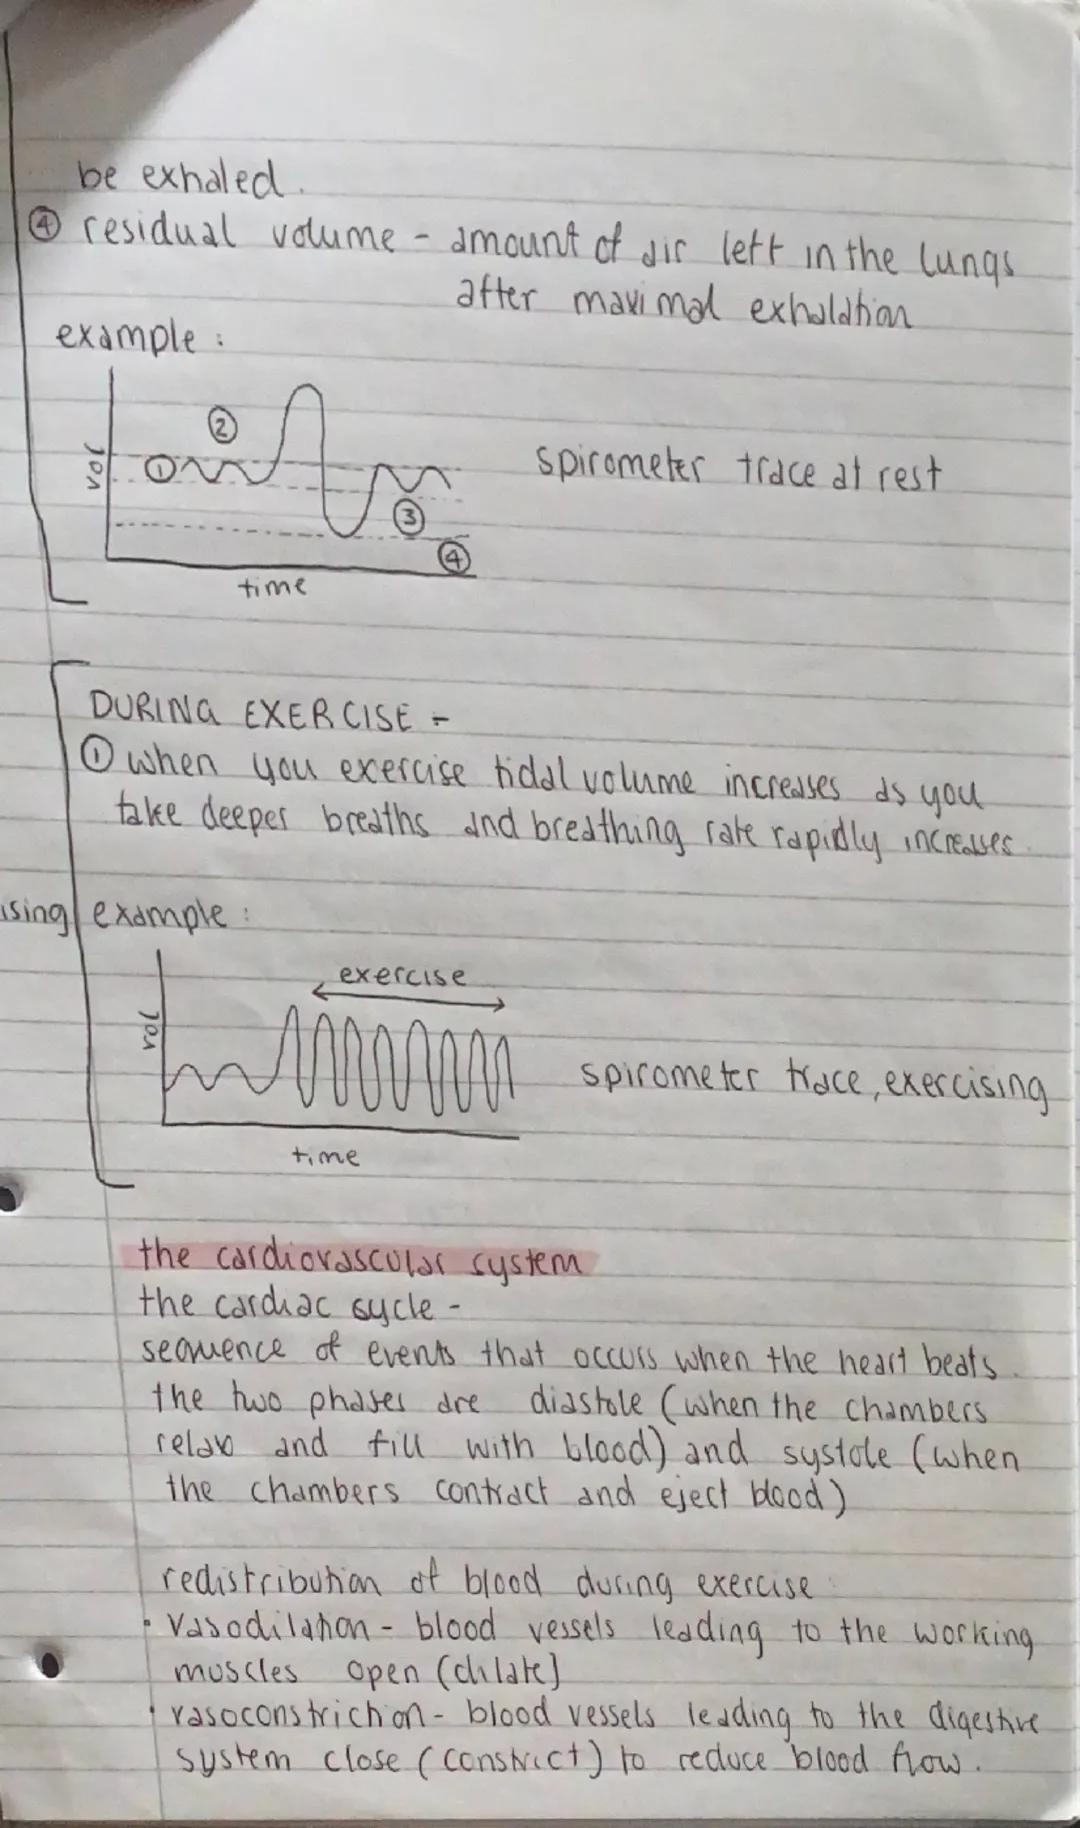 be exhaled.
④ residual volume - amount of air left in the lungs
after maximal exhalation
example:
②
vol
①
spirometer trace at rest
③
④
time
DURING EXERCISE -
① when you exercise tidal volume increases as you
take deeper breaths and breathing rate rapidly increases.
ising
example:
exercise
vol
spirometer trace, exercising
time
the cardiovascular system
the cardiac cycle -
sequence of events that occurs when the heart beats.
the two phases are diastole (when the chambers
relax and fill with blood) and systole (when
the chambers contract and eject blood)
redistribution of blood during exercise:
• vasodilation - blood vessels leading to the working
muscles open (dilate)
• vasoconstriction - blood vessels leading to the digestive
system close (constrict) to reduce blood flow.